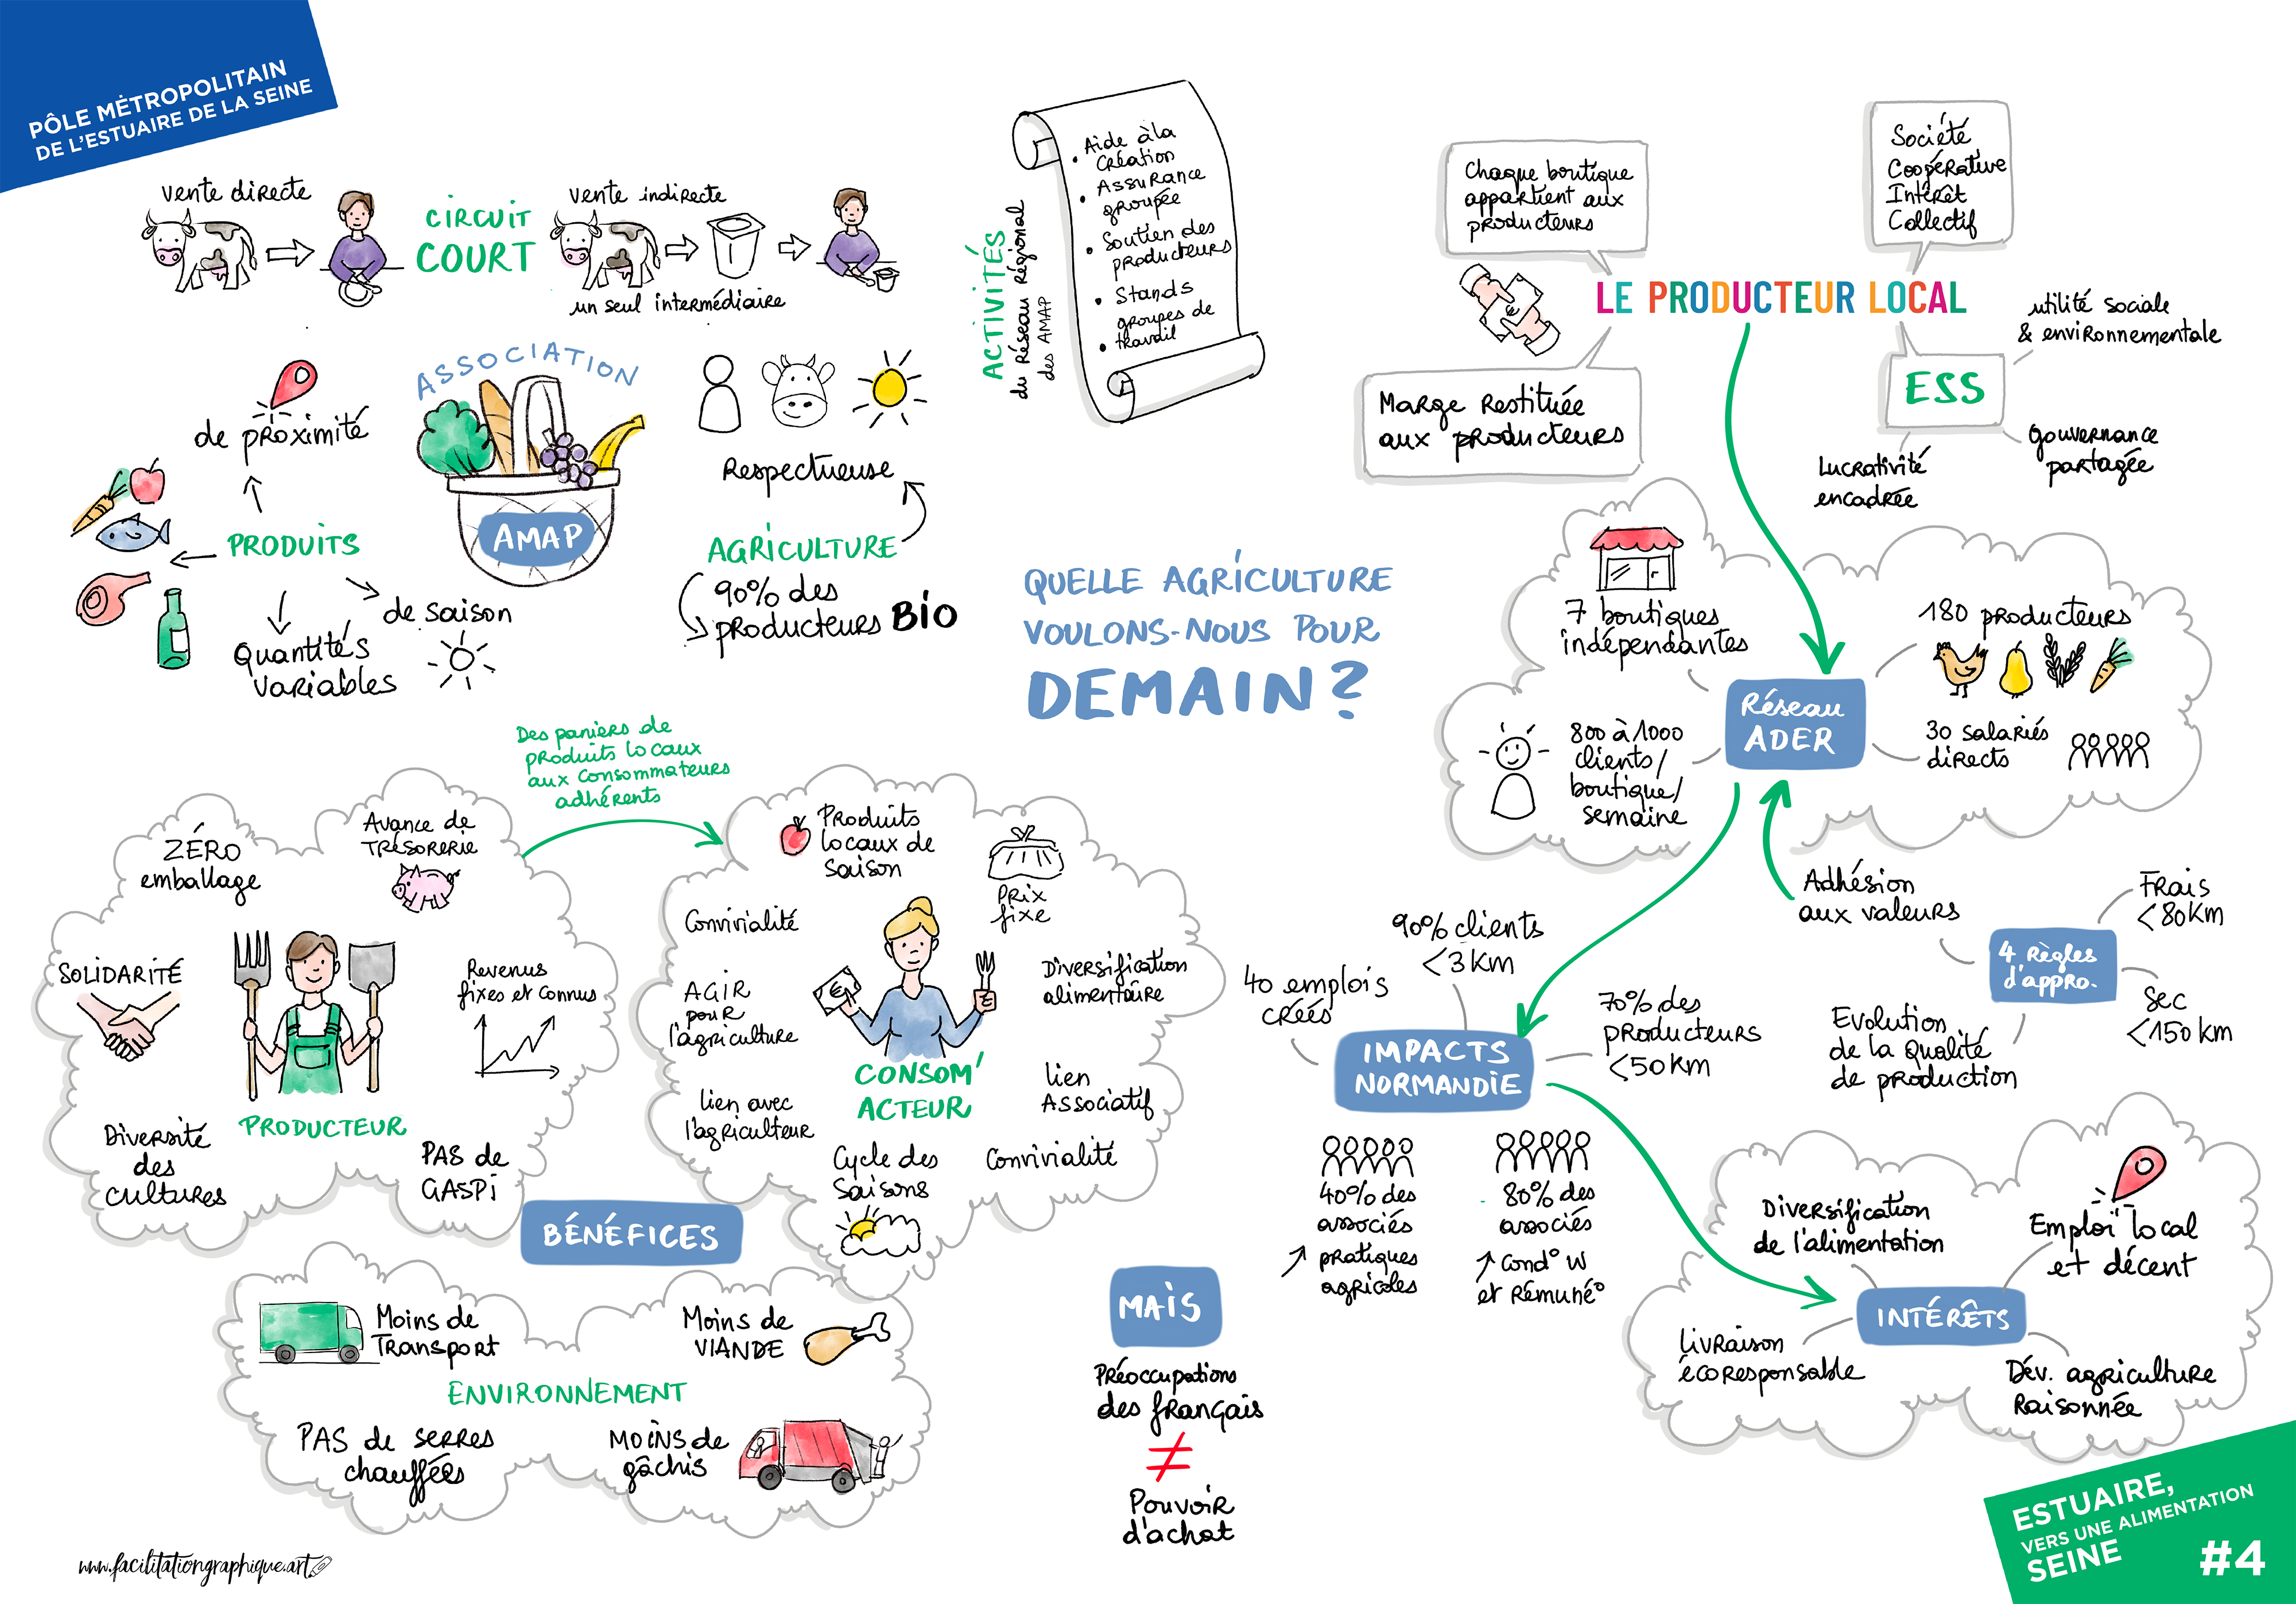 PÔLE MÉTROPOLITAIN
DE L'ESTUAIRE DE LA SEINE
vente directe
CIRCUIT
COURT
vente indirecte
un seul intermédiaire
ASSOCIATION
AMAP
de proximité
PRODUITS
de saison
Quantités
variables
Respectueuse
AGRICULTURE
90% des
producteurs BIO
ACTIVITÉS
du Réseau Régional
des AMAP
• Aide à la
Création
• Assurance
groupée
• Soutien des
producteurs
• Stands
groupes de
• travail
QUELLE AGRICULTURE
VOULONS-NOUS POUR
DEMAIN?
Chaque boutique
appartient aux
producteurs
Société
Coopérative
Intérêt
Collectif
LE PRODUCTEUR LOCAL
Marge restituée
aux producteurs
ESS
utilité sociale
& environnementale
gouvernance
partagée
Lucrativité
encadrée
7 boutiques
indépendantes
180 producteurs
Réseau
ADER
800 à 1000
clients/
boutique/
semaine
30 salariés
directs
Adhésion
aux valeurs
4 Règles
d'appro.
Frais
<80Km
Sec
<150 km
Evolution
de la qualité
de production
Des paniers de
produits locaux
aux consommateurs
adhérents
ZÉRO
emballage
Avance de
TRÉSORERIE
SOLIDARITÉ
Revenus
fixes et connus
PRODUCTEUR
Diversité
des
cultures
PAS de
GASPI
Produits
locaux de
saison
Prix
fixe
Convivialité
AGIR
pour
l'agriculture
Diversification
alimentaire
CONSOM'
ACTEUR
lien avec
l'agriculteur
lien
Associatif
Cycle des
Saisons
Convivialité
BÉNÉFICES
Moins de
Transport
Moins de
VIANDE
ENVIRONNEMENT
PAS de serres
chauffées
MOINS de
gâchis
MAIS
Préoccupations
des français
≠
Pouvoir
d'achat
90% clients
<3 Km
40 emplois
créés
70% des
producteurs
<50 km
IMPACTS
NORMANDIE
40% des
associés
↗ pratiques
agricoles
80% des
associés
↗ Cond° W
et Rémuné°
Diversification
de l'alimentation
Emploi local
et décent
INTÉRÊTS
Livraison
écoresponsable
Dév. agriculture
Raisonnée
www.facilitationgraphique.art
ESTUAIRE,
VERS UNE ALIMENTATION
SEINE
#4